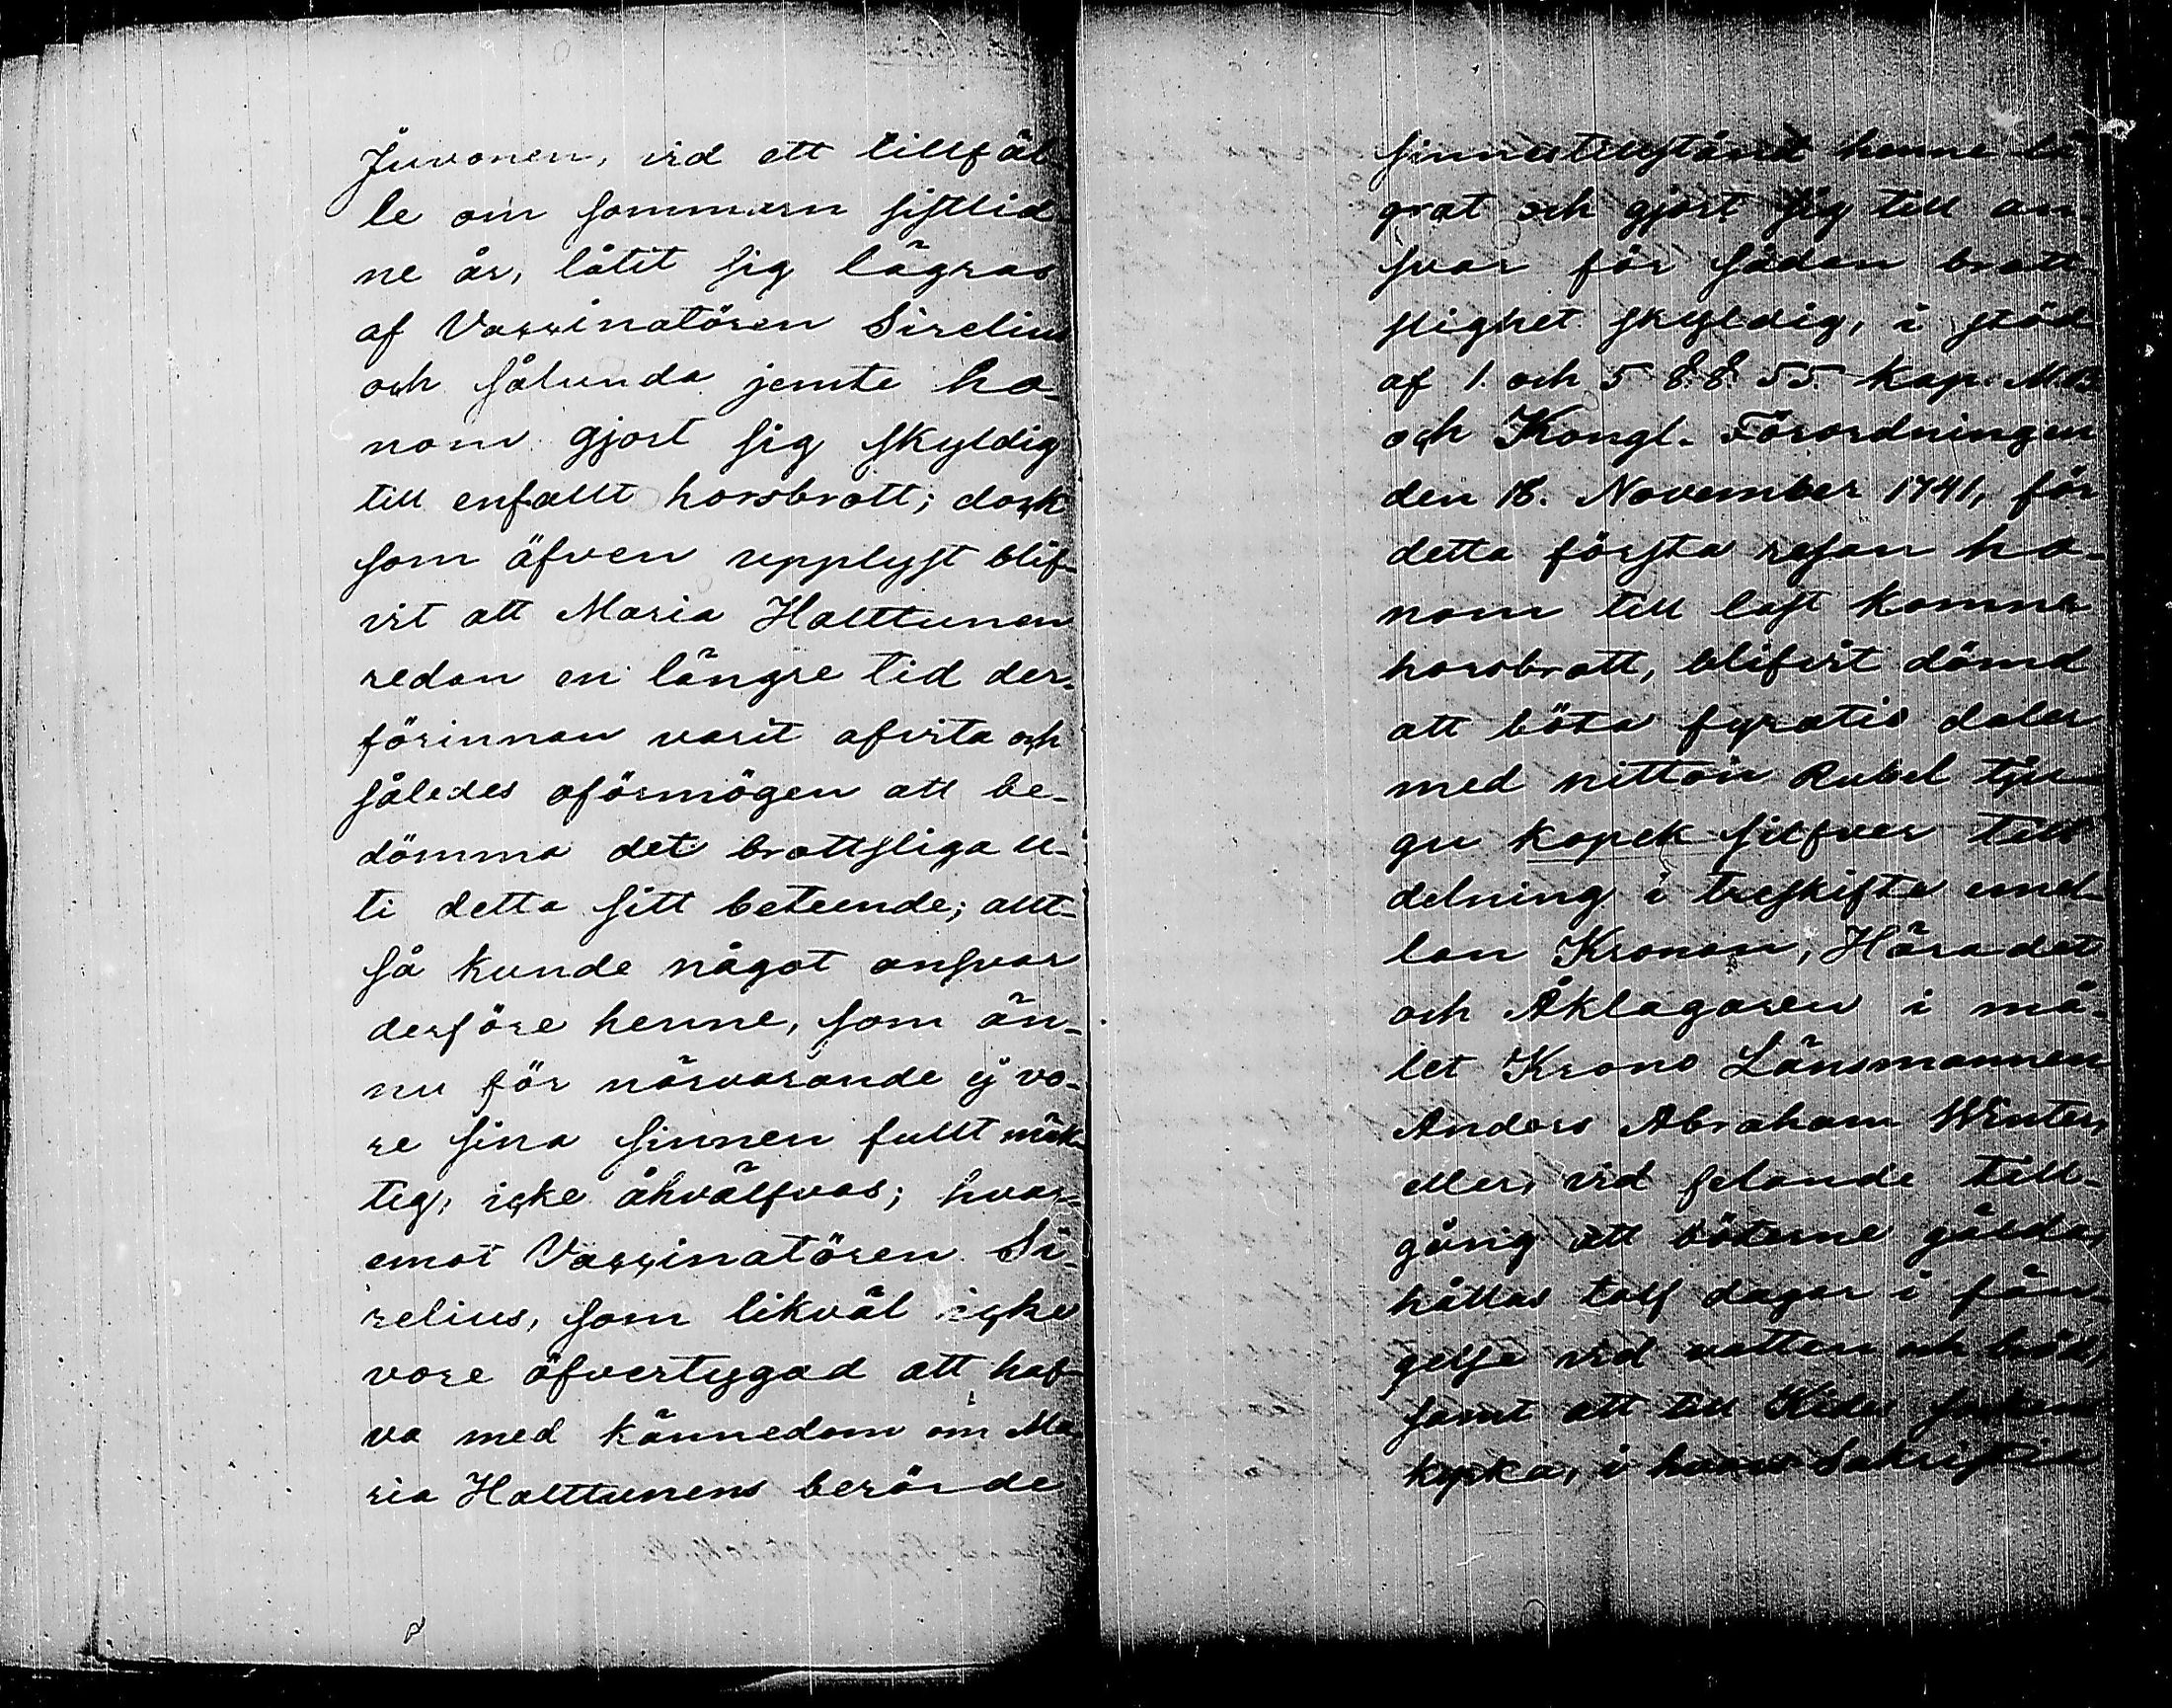 Juvonen, vid ett tillfäl-
le om sommarn sistlid-
ne år, låtit sig lägras
af Vaccinatören Sirelius
och sålunda jemte ho-
nom gjort sig skyldig
till enfallt horsbrott; dock
som äfven upplyst blif-
vit att Maria Halttunen
redan en längre tid der-
förinnan varit afvita och
således oförmögen att be-
dömma det brottsliga u-
ti detta sitt beteende; allt-
så kunde något ansvar
derföre henne, som än-
nu för närvarande ej vo-
re sina sinnen fullt mäk-
tig, icke åhvälfvas; hvar-
emot Vaccinatören Si-
relius, som likväl icke
vore öfvertygad att haf-
va med kännedom om Ma-
ria Halttunens berörde
sinnestillstånd henne lä-
grat och gjort sig till an-
svar för sådan brott-
slighet skyldig, i stöd
af 1. och 5 §.§. 55 Kap. M.B.
och Kongl. Förordningen
den 18. November 1741, för
detta första resan ho-
nom till last komne
horsbrott, blifvit dömd
att böta fyratio daler
med nitton Rubel tju-
gu kopek silfver till
delning i treskifte emel-
lan Kronan, Häradet
och Åklagaren i må-
let Krono Länsmannen
Anders Abraham Winter,
eller, vid felande till-
gång att böterne gälda,
hållas tolf dagar i fän-
gelse vid vatten och bröd,
samt att till Kides sockens
kyrka, i hvars Sakristia